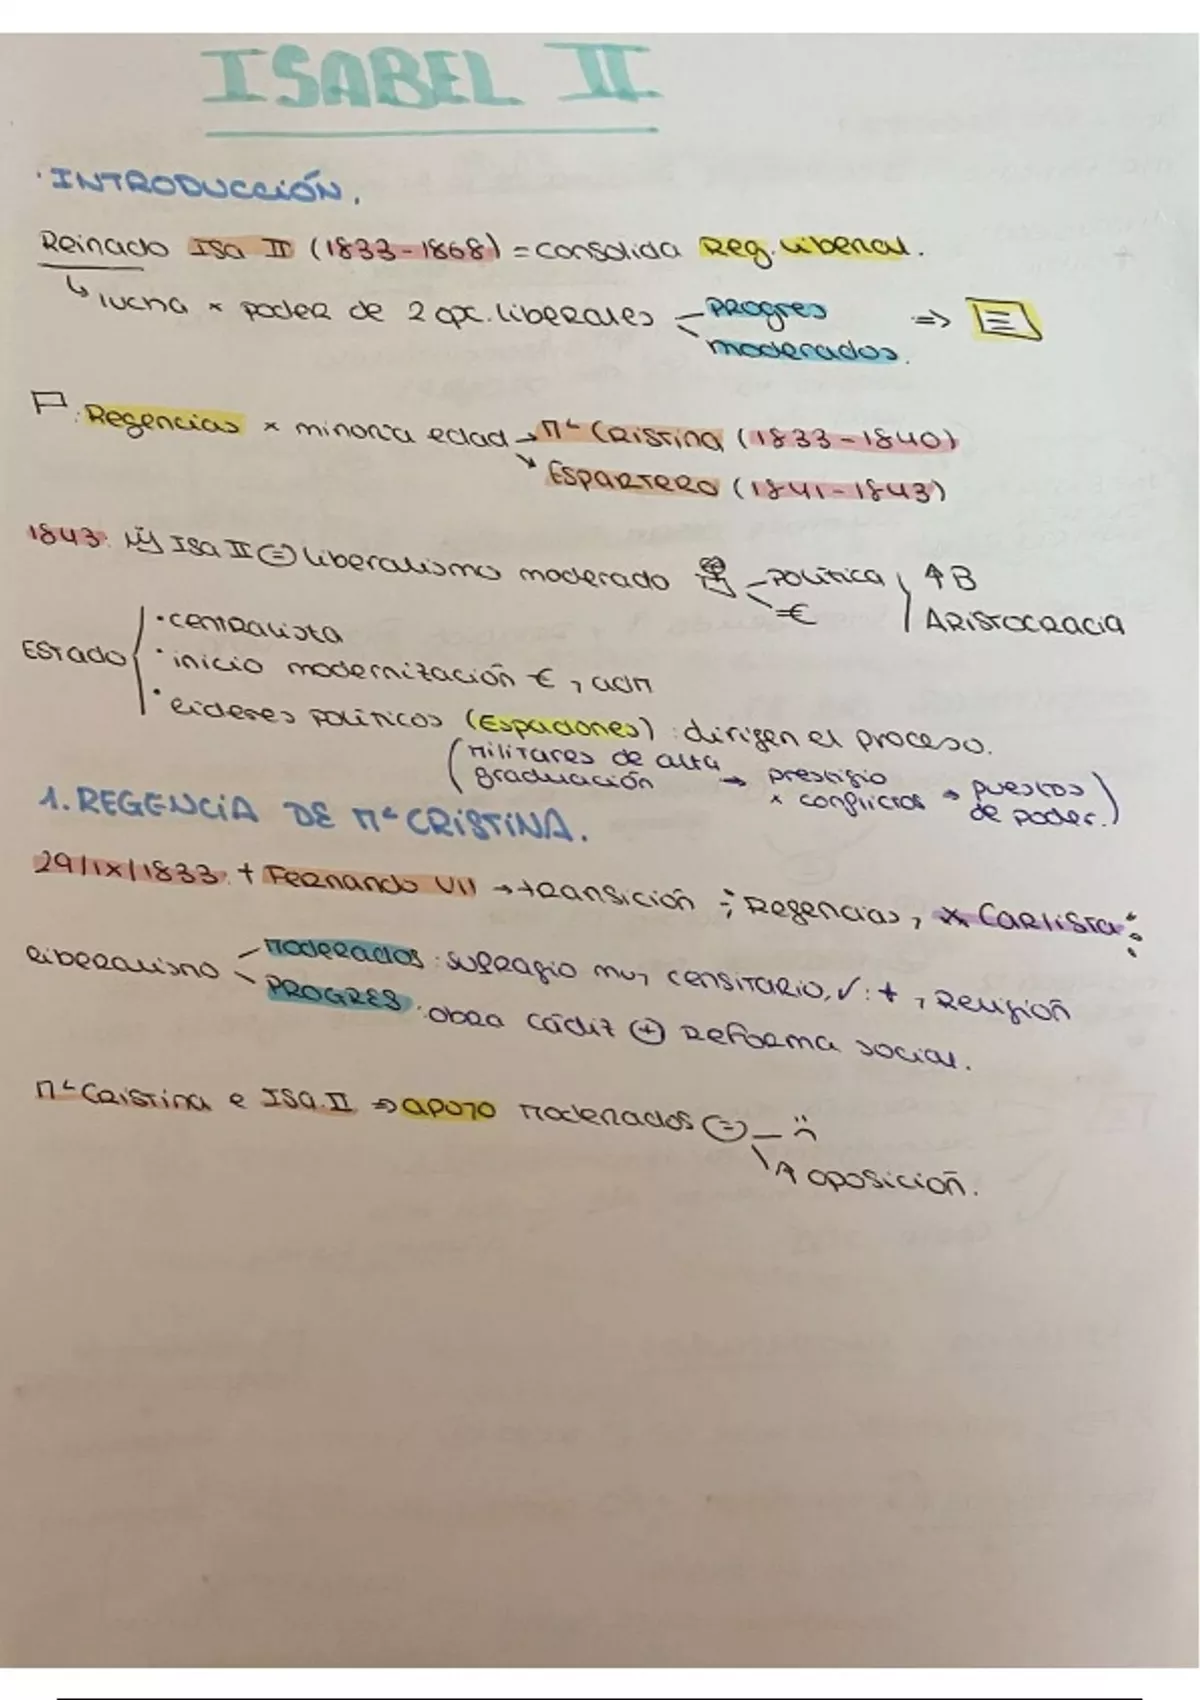 ISABEL II
· INTRODUCCIÓN.
Reinado Isa II (1833-1868) = consolida Reg. liberal.
↳ lucha x poder de 2 opc. liberales - progres ⇒
moderados.
: Regencias x minoría edad → Mª Cristina (1833-1840)
↘ Espartero (1841-1843)
1843: Isa II = liberalismo moderado - política ↑ B
€ Aristocracia
Estado · centralista
· inicio modernización €, adm
· líderes políticos (Espadones): dirigen el proceso.
(militares de alta graduación → prestigio x conflictos → puestos de poder.)
1. REGENCIA DE Mª CRISTINA.
29/IX/1833: + Fernando VII → transición ; Regencias, x Carlista
liberalismo - Moderados: sufragio muy censitario, ✓: +, Religión
PROGRES: obra Cádiz + Reforma social.
Mª Cristina e Isa II ⇒ apoyo Moderados = - :(
↑ oposición.